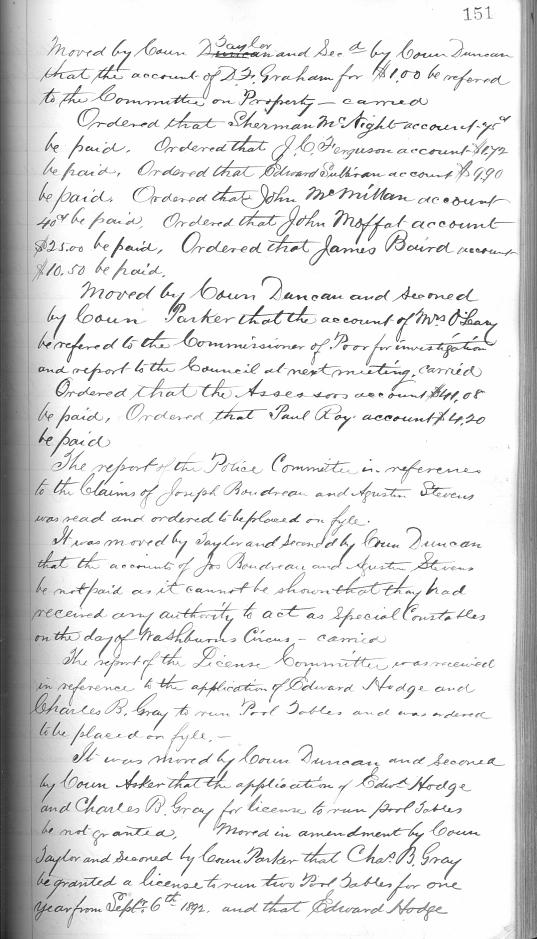 151
Moved by Coun D Taylor Duncan and Secd by Coun Duncan
that the account of D. F. Graham for $1.00 be refered
to the Committee on Property – carried
Ordered that Sherman McNight account 75ct
be paid. Ordered that J. C. Ferguson account $8.92
be paid. Ordered that Edward Sullivan account $9.90
be paid. Ordered that John McMillan account
40ct be paid. Ordered that John Moffat account
$25.00 be paid. Ordered that James Baird account
$10.50 be paid.
Moved by Coun Duncan and Seconed
by Coun Parker that the account of Mrs O'Leary
be refered to the Commissioner of Poor for investigation
and report to the Council at next meeting. carried
Ordered that the Assessors account $41.08
be paid. Ordered that Paul Roy account $4.20
be paid
The report of the Police Committee in reference
to the Claims of Joseph Boudreau and Agustin Stevens
was read and ordered to be placed on fyle.
It was moved by Taylor and Seconed by Coun Duncan
that the accounts of Jos Boudreau and Agustin Stevens
be not paid as it cannot be shown that they had
received any authority to act as Special Constables
on the day of Washburns Circus, – carried
The report of the License Committee was received
in reference to the application of Edward Hodge and
Charles B. Gray to run Pool Tables and was ordered
to be placed on fyle. –
It was moved by Coun Duncan and Seconed
by Coun Asker that the application of Edwd Hodge
and Charles B. Gray for license to run pool Tables
be not granted. Moved in amendment by Coun
Taylor and Seconed by Coun Parker that Chas B. Gray
be granted a license to run two Pool Tables for one
year from Sept. 6th 1892. and that Edward Hodge